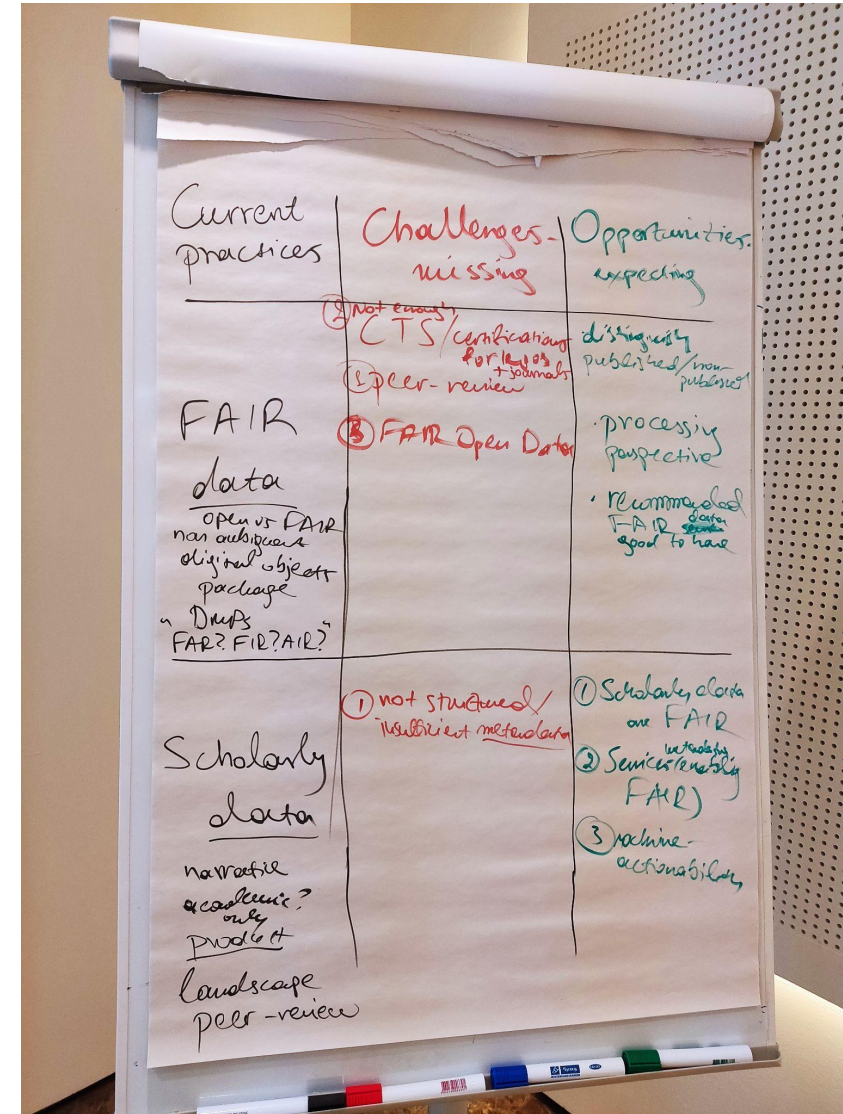 Current
practices
Challenges-
missing
Opportunities-
expecting
FAIR
data
open vs FAIR
non ambiguent
digital objects
package
"DMPs
FAR? FIR? AIR?"
② Not enough
CTS/certifications
for repos
+ journals
① peer-review
③ FAIR Open Data
distinguish
published/non-
published
· processing
perspective
· recommended
FAIR data
good to have
Scholarly
data
narrative
academic?
only
product
landscape
peer-review
① not structured/
insufficient metadata
① Scholarly data
are FAIR
② Services (enabling
FAIR)
③ machine-
actionability